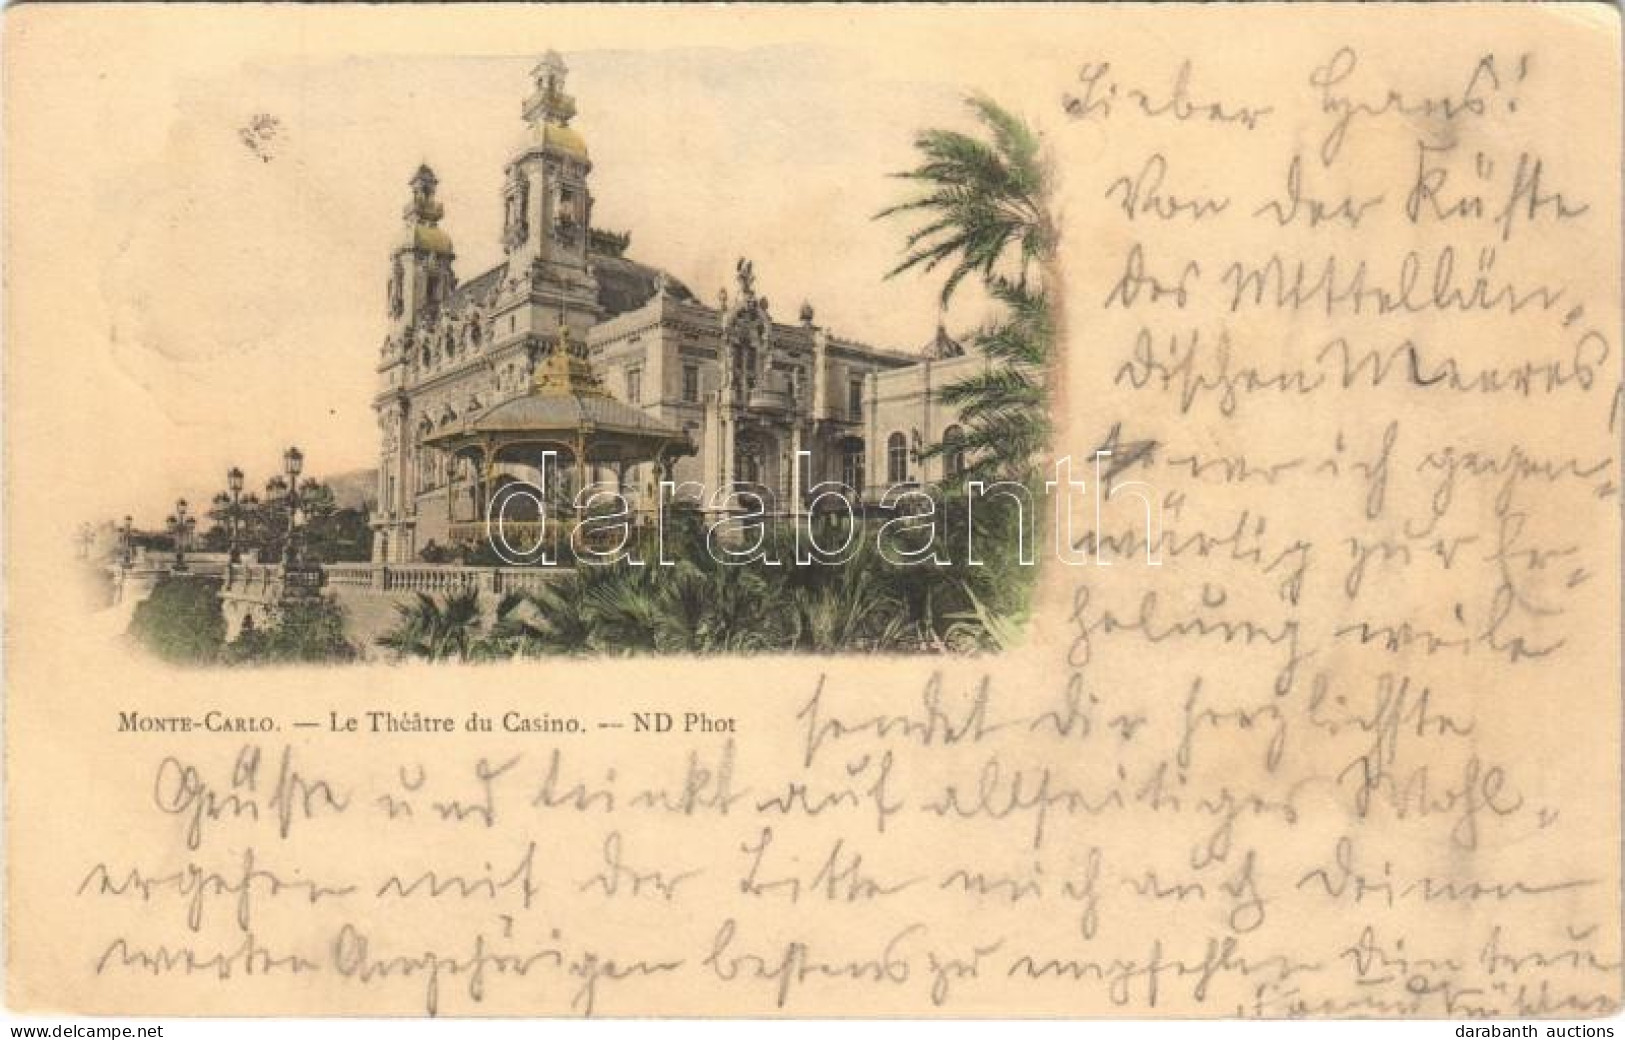 Lieber Hans!
Von der Küste
des Mittellän-
dischen Meeres
wo ich gegen-
wärtig zur Er-
holung weile
MONTE-CARLO. — Le Théâtre du Casino. — ND Phot
sendet Dir herzlichste
Grüsse und trinkt auf allseitiges Wohl-
ergehen mit der Bitte mich auch Deinen
werten Angehörigen bestens zu empfehlen Dein treuer
Freund
darabanth
darabanth auctions